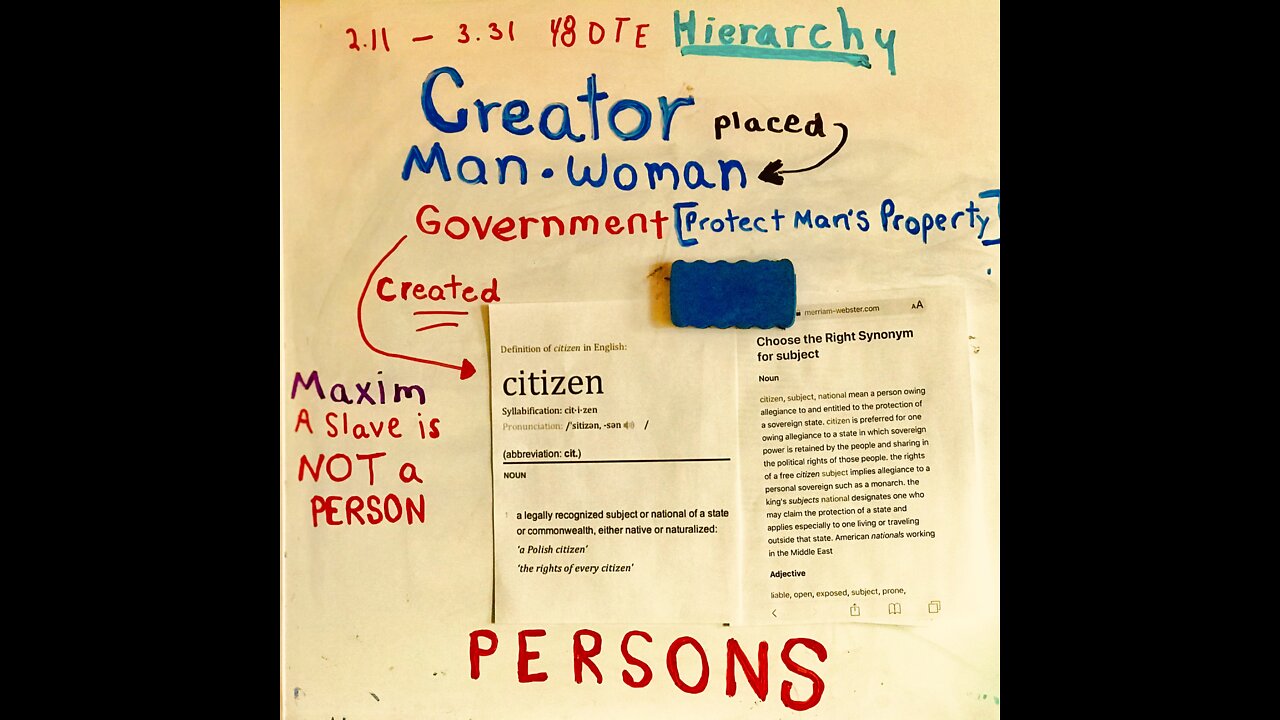 2.11 – 3.31 48 DTE Hierarchy
Creator placed
Man • Woman
Government [Protect Man's Property]
Created
Maxim
A Slave is
NOT a
PERSON
Definition of citizen in English:
citizen
Syllabification: cit·i·zen
Pronunciation: /ˈsitizən, -sən /
(abbreviation: cit.)
NOUN
1 a legally recognized subject or national of a state
or commonwealth, either native or naturalized:
'a Polish citizen'
'the rights of every citizen'
merriam-webster.com AA
Choose the Right Synonym
for subject
Noun
citizen, subject, national mean a person owing
allegiance to and entitled to the protection of
a sovereign state. citizen is preferred for one
owing allegiance to a state in which sovereign
power is retained by the people and sharing in
the political rights of those people. the rights
of a free citizen subject implies allegiance to a
personal sovereign such as a monarch. the
king's subjects national designates one who
may claim the protection of a state and
applies especially to one living or traveling
outside that state. American nationals working
in the Middle East
Adjective
liable, open, exposed, subject, prone,
PERSONS